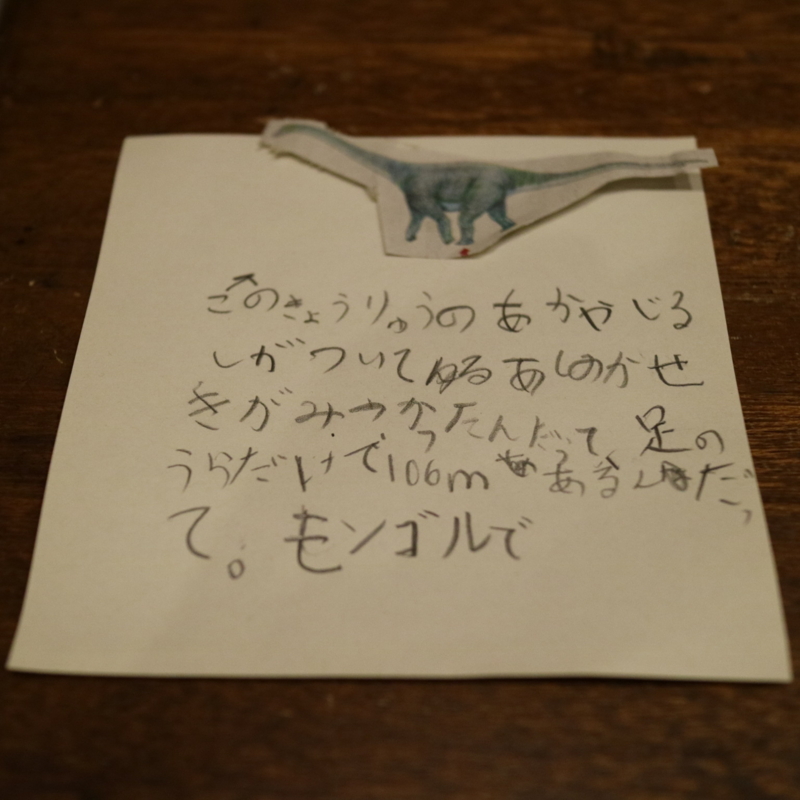 このきょうりゅうのあかやじる
しがついてゆるあしのかせ
きがみつかったんだって、足の
うらだけで106mあるんだっ
て。モンゴルで